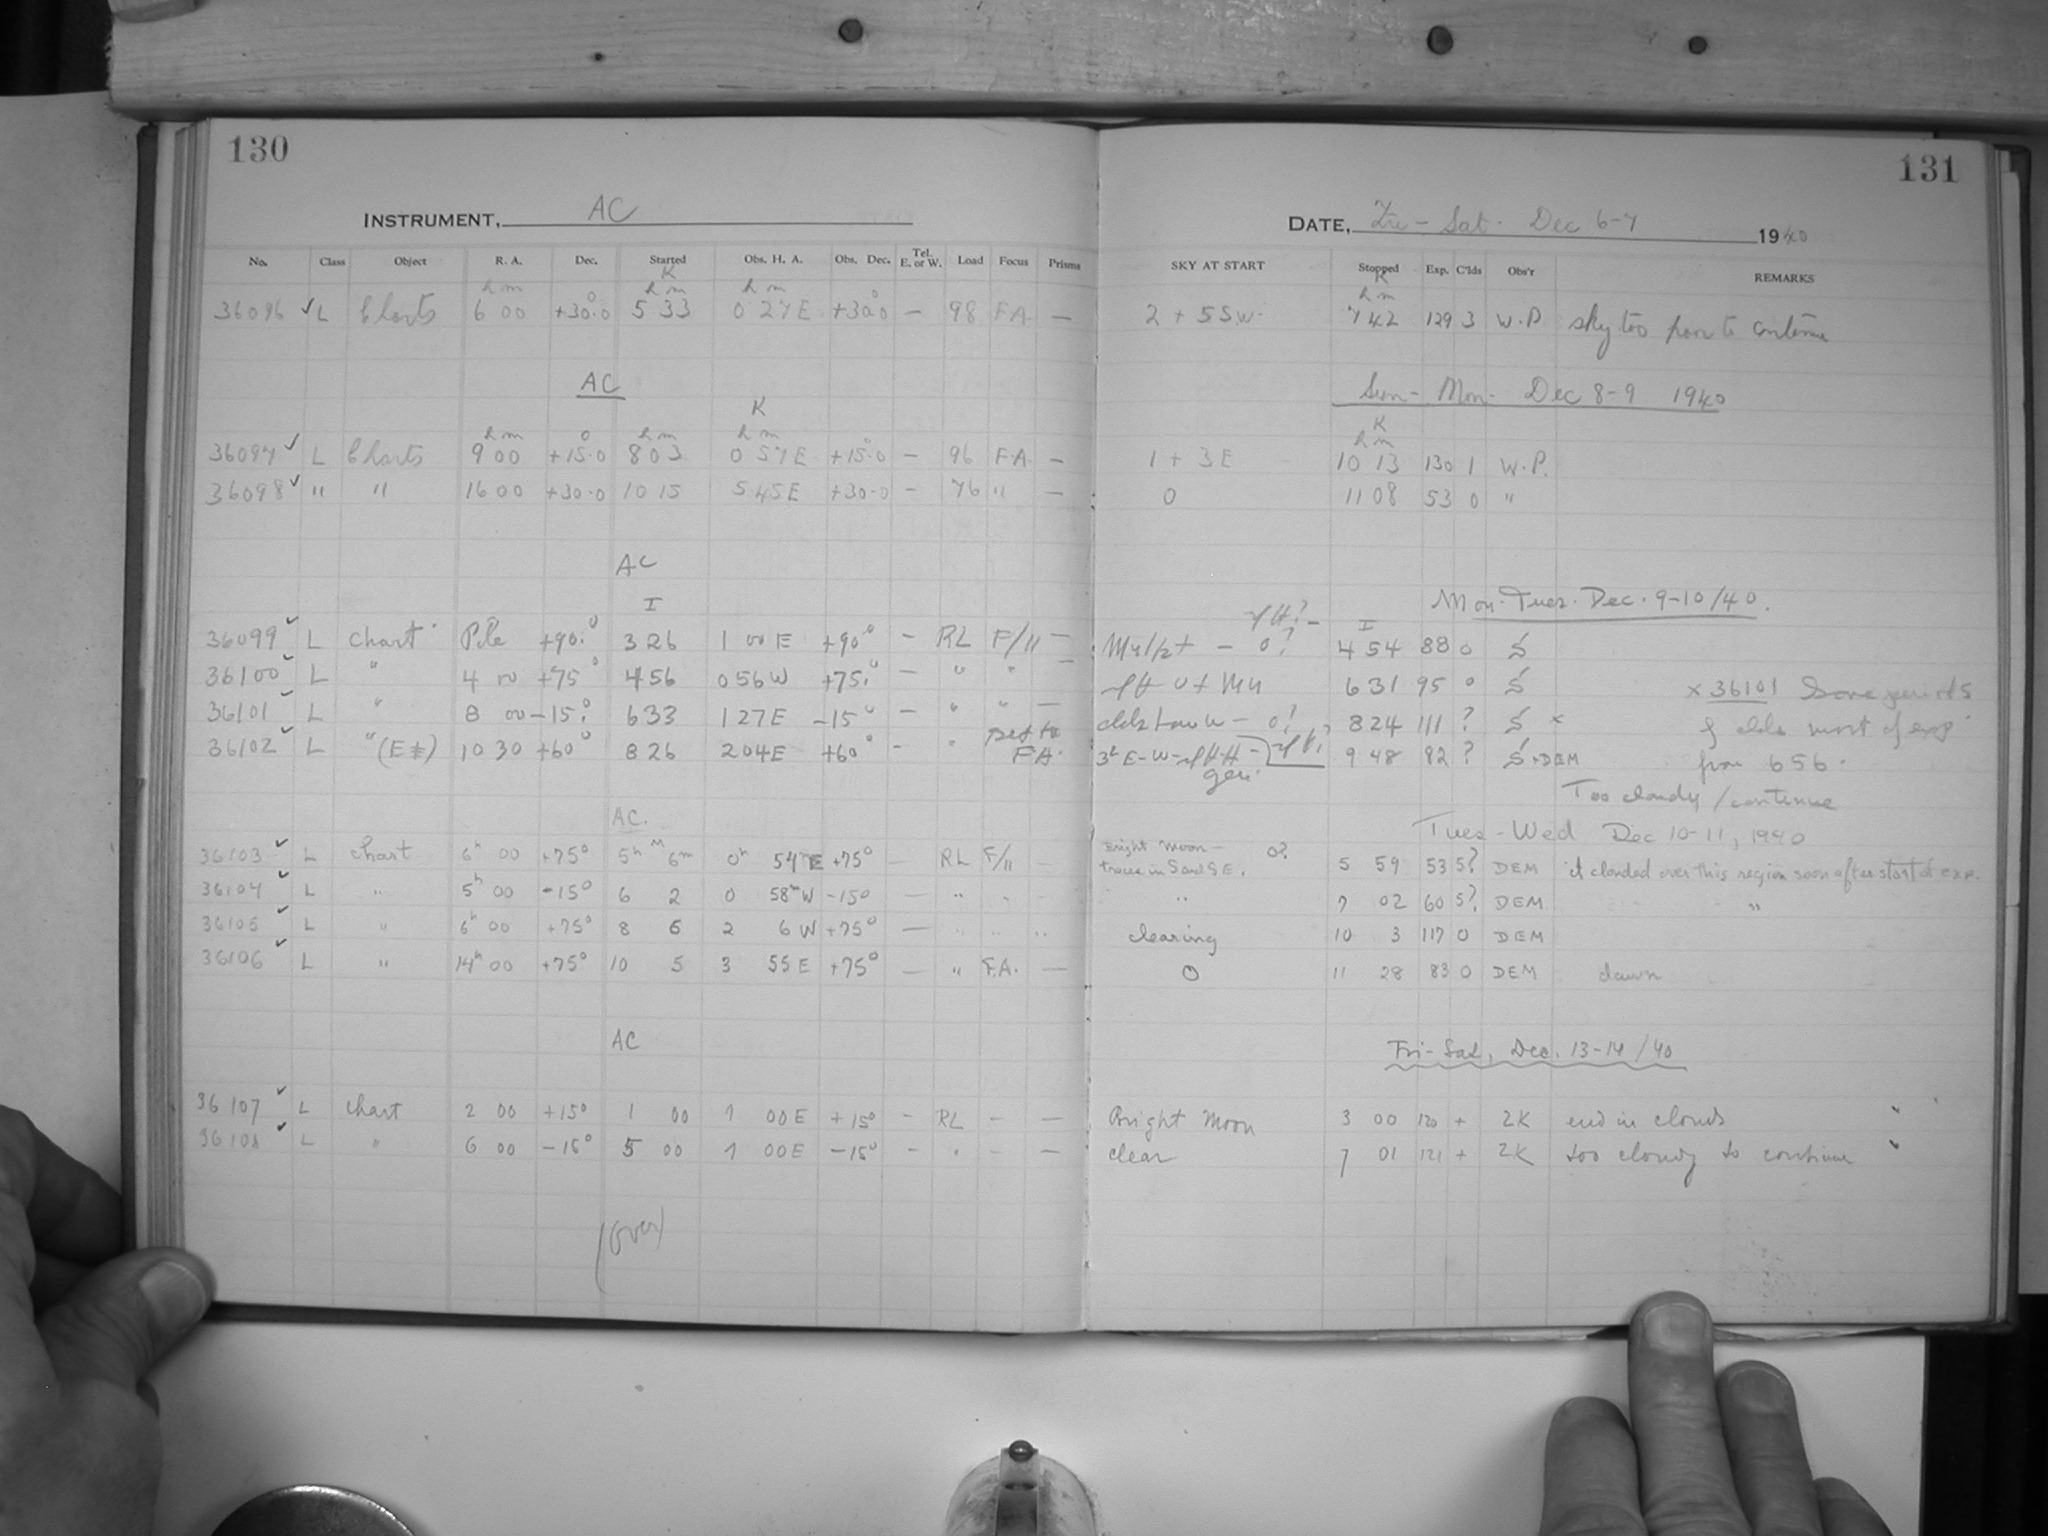 130
131
INSTRUMENT, AC
DATE, Fri - Sat. Dec 6-7 1940
No. Class Object R. A. Dec. Started Obs. H. A. Obs. Dec. Tel. E. or W. Load Focus Prisms SKY AT START Stopped Exp. C'lds Obs'r REMARKS
K K
h m h m h m h m
36096 ✓ L Charts 6 00 +30.0 5 33 0 27 E +30.0 — 98 FA — 2 + 5 SW. 7 42 129 3 W.P. sky too poor to continue
AC Sun - Mon - Dec 8-9 1940
K K
h m h m h m h m
36097 ✓ L Charts 9 00 +15.0 8 03 0 57 E +15.0 — 96 F.A. — 1 + 3 E 10 13 130 1 W.P.
36098 ✓ L " " 16 00 +30.0 10 15 5 45 E +30.0 — 76 " — 0 11 08 53 0 "
AC
I Mon. Tues. Dec. 9-10/40.
I
36099 ✓ L Chart Pole +90.° 3 26 1 00 E +90° — RL F/11 — — 0? 4 54 88 0 S
36100 ✓ L " 4 00 +75° 4 56 0 56 W +75.° — " " — 6 31 95 0 S x 36101 Some periods
36101 ✓ L " 8 00 -15.° 6 33 1 27 E -15° — " " — clds low W — 0? 8 24 111 ? S x of clds most of exp.
36102 ✓ L " (E*) 10 30 +60° 8 26 2 04 E +60° — " set to F.A. 3h E-W- gen. 9 48 82 ? S + DEM from 656.
Too cloudy / continue
AC. Tues - Wed Dec 10-11, 1940
36103 ✓ L Chart 6h 00 +75° 5h 6m 0h 54m E +75° — RL F/11 — Bright Moon — traces in S and SE. 0? 5 59 53 5? DEM it clouded over this region soon after start of exp.
36104 ✓ L " 5h 00 -15° 6 2 0 58m W -15° — " " - " 7 02 60 5? DEM "
36105 ✓ L " 6h 00 +75° 8 6 2 6 W +75° — " " " clearing 10 3 117 0 DEM
36106 ✓ L " 14h 00 +75° 10 5 3 55 E +75° — " F.A. — 0 11 28 83 0 DEM dawn
AC Fri - Sat, Dec. 13-14/40
36107 ✓ L Chart 2 00 +15° 1 00 1 00 E +15° — RL — — Bright Moon 3 00 120 + 2K end in clouds
36108 ✓ L " 6 00 -15° 5 00 1 00 E -15° — " — — clear 7 01 121 + 2K too cloudy to continue
(over)